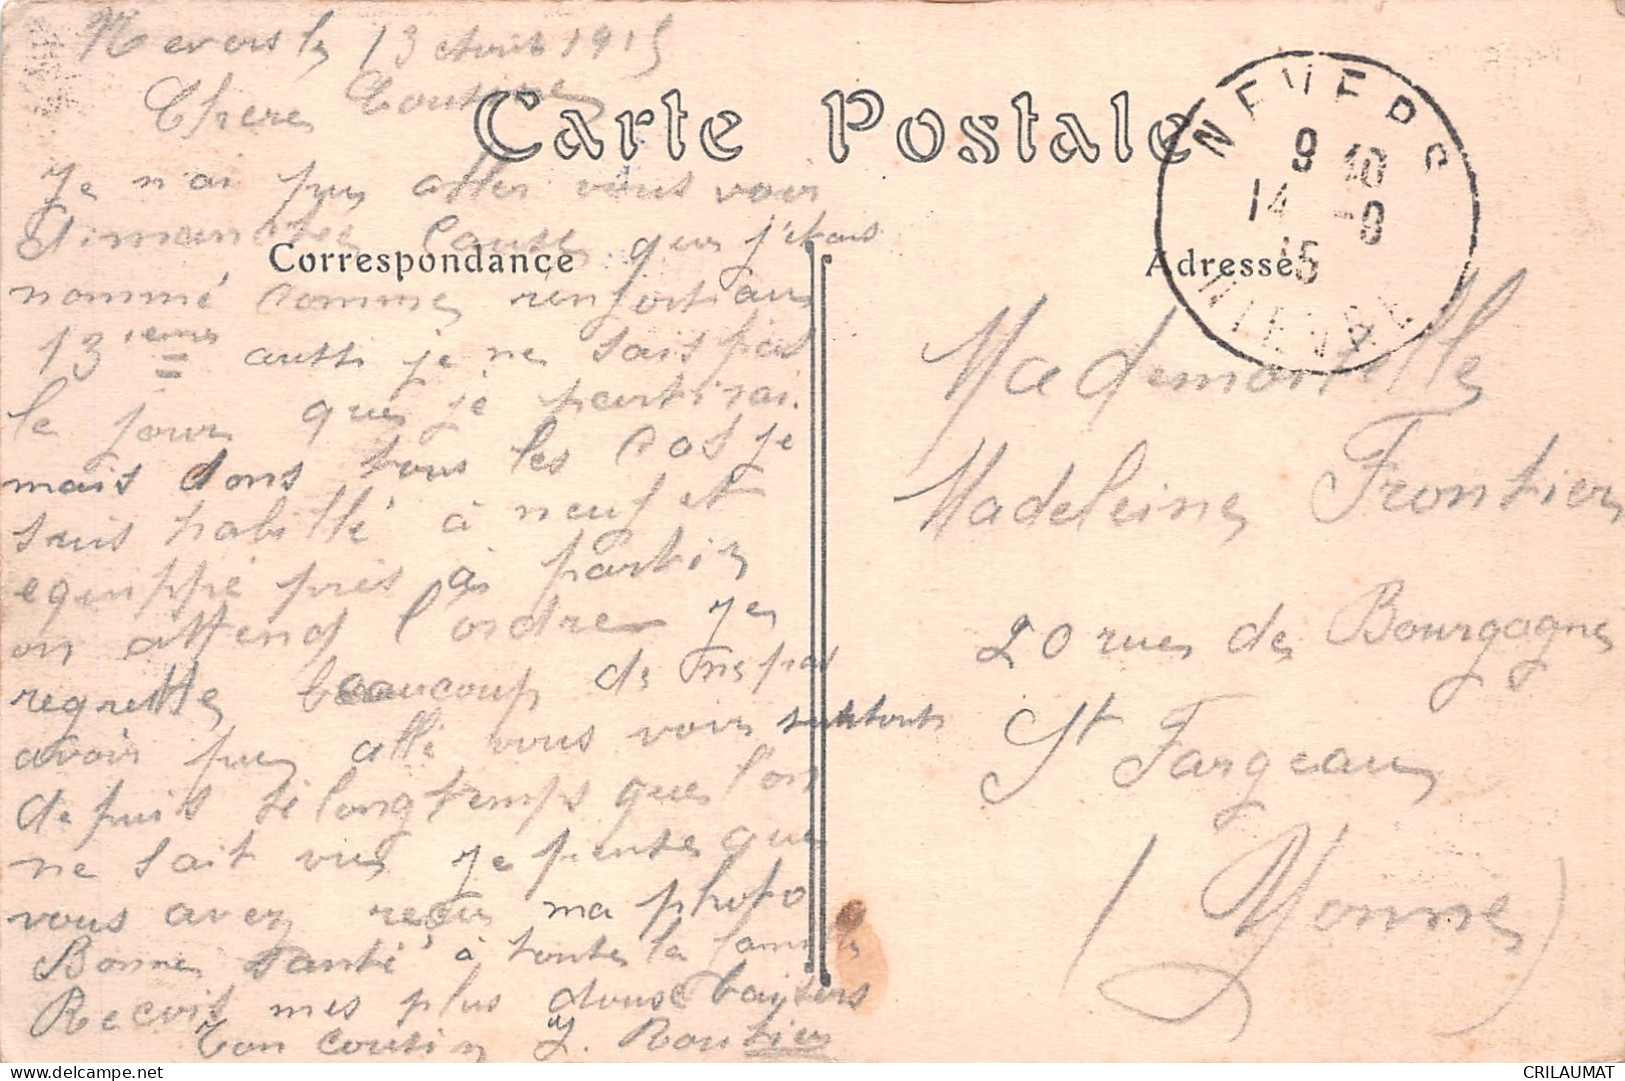 Nevers le 13 Août 1915
Chere Cousine
Carte Postale
Je n'ai pu aller vous voir
dimanche cause que j'étais
Correspondance
nommé comme renfort au
13ieme aussi je ne sais pas
le jour que je partirai.
mais dans tous les cas je
suis habillé à neuf et
equippé près à partir
on attend l'ordre Je
regrette beaucoup de ne pas
avoir pu allé vous voir surtout
depuis si longtemps que l'on
ne sait vu Je pense que
vous avez reçu ma photo
Bonne santé à toute la famille
Recois mes plus doux baisers
Ton cousin
NEVERS
9 10
14 -8
15
NIEVRE
Adresse
Mademoiselle
Madeleine Frontier
20 rue de Bourgogne
St Fargeau
(Yonne)
CRILAUMAT